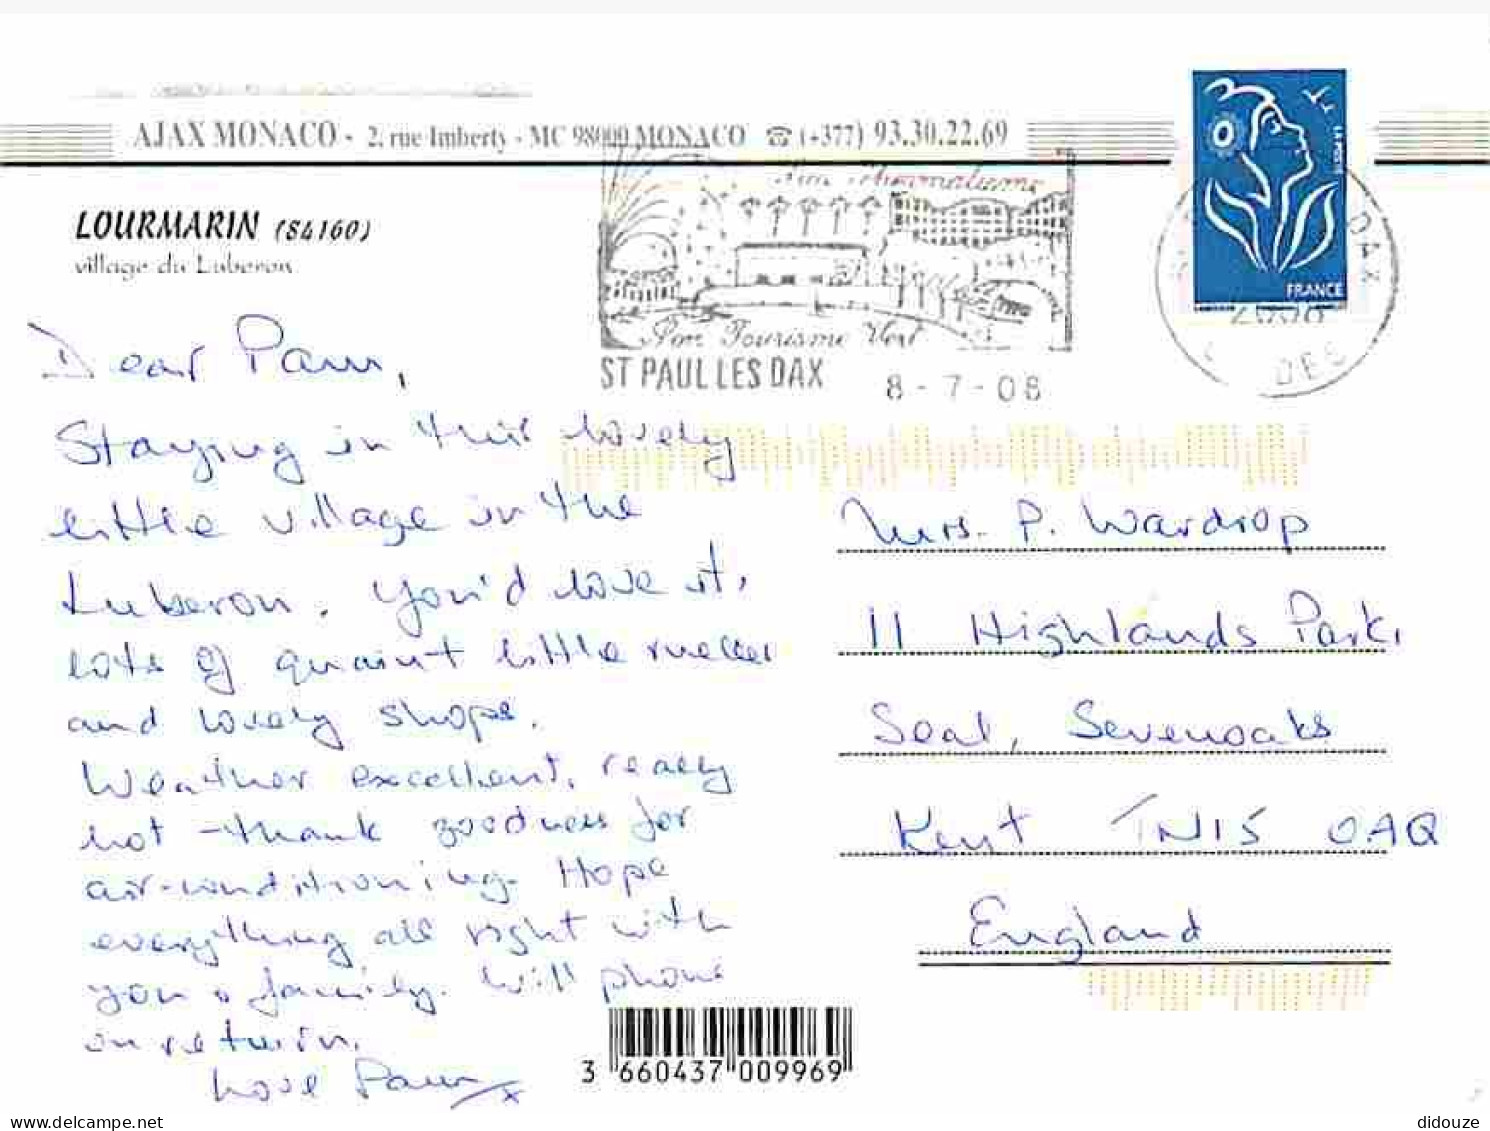 AJAX MONACO - 2, rue Imberty - MC 98000 MONACO ☎ (+377) 93.30.22.69
LOURMARIN (84160)
village du Luberon
Son Thermalisme
Son Tourisme Vert
ST PAUL LES DAX 8-7-08
DAX
LA POSTE
FRANCE
Dear Pam,
Staying in this lovely
little village in the
Luberon. You'd love it,
lots of quaint little
and lovely shops.
Weather excellent, really
hot - thank goodness for
air-conditioning. Hope
everything all right with
you & family. Will phone
on return.
Love Pam x
Mrs. P. Wardrop
11 Highlands Park,
Seal, Sevenoaks
Kent TN15 0AQ
England
3 660437 009969
delcampe.net
didouze